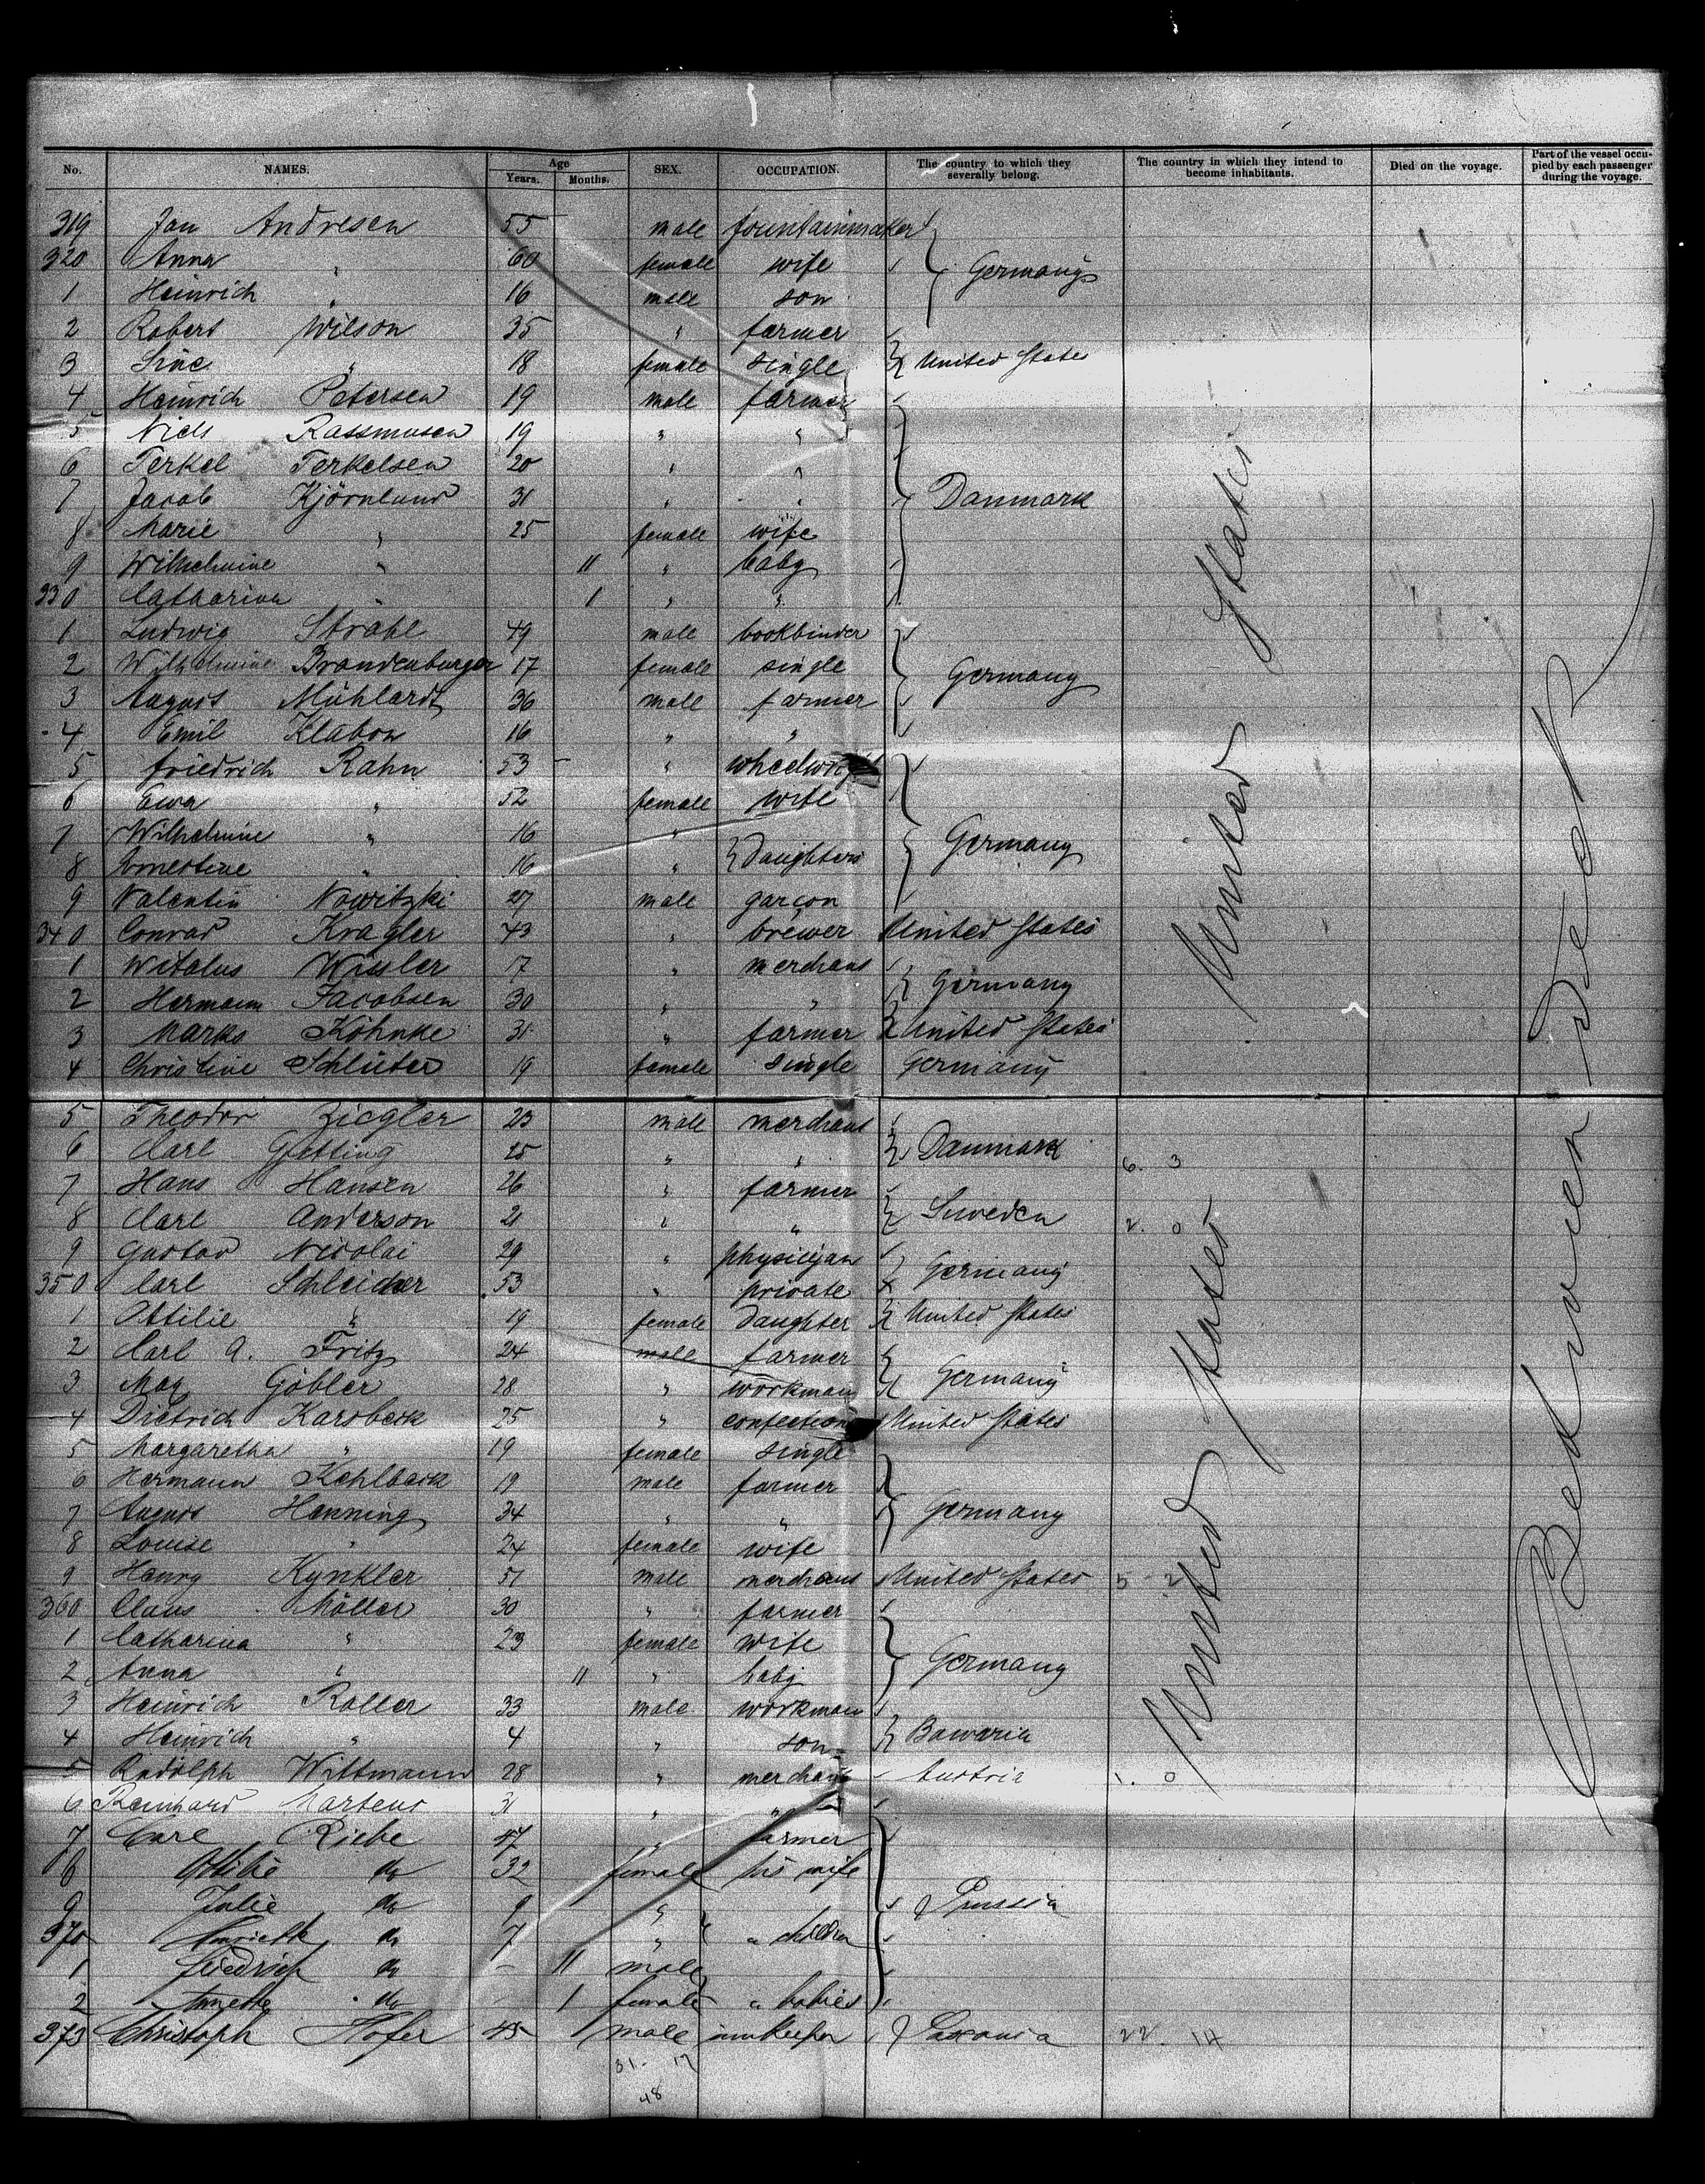 No. NAMES. Age Years. Months. SEX. OCCUPATION. The country to which they severally belong. The country in which they intend to become inhabitants. Died on the voyage. Part of the vessel occupied by each passenger during the voyage.
319 Jan Andresen 55 male fountainmaker
320 Anna " 60 female wife Germany
1 Heinrich " 16 male son
2 Robert Wilson 35 " farmer
3 Sine " 18 female single United States
4 Heinrich Petersen 19 male farmer
5 Niels Rassmusen 19 " "
6 Terkel Terkelsen 20 " "
7 Jacob Kjörnlund 31 " " Danmark
8 Marie " 25 female wife
9 Wilhelmine " 11 " baby
330 Catharina " 1 " "
1 Ludwig Strahl 49 male bookbinder
2 Wilhelmine Brandenburger 17 female single Germany
3 August Mühlardt 36 male farmer
4 Emil Klabon 16 " "
5 Friedrich Rahn 53 " wheelwright
6 Ewa " 52 female wife
7 Wilhelmine " 16 " Daughters Germany
8 Ernestine " 16 "
9 Valentin Nowitzki 27 male garcon
340 Conrad Kragler 43 " brewer United States
1 Witalus Wissler 17 " merchant
2 Hermann Jacobsen 30 " " Germany
3 Marks Köhnke 31 " farmer United States
4 Christine Schlüter 19 female single Germany
United States
5 Theodor Ziegler 23 male merchant
6 Carl Gjetting 25 " " Danmark 6. 3
7 Hans Hansen 26 " farmer
8 Carl Anderson 21 " " Sweden 2. 0
9 Gustav Nicolai 29 " physicijan Germany
350 Carl Schleicher 53 " private
1 Ottilie " 19 female Daughter United States
2 Carl A. Fritz 24 male farmer
3 Max Göbler 28 " workman Germany
4 Dietrich Karsbeck 25 " confection United States
5 Margaretha " 19 female single
6 Hermann Kehlbeck 19 male farmer
7 August Henning 34 " " Germany
8 Louise " 24 female wife
9 Henry Kynkler 51 male merchant United States 5 2
360 Claus Möller 30 " farmer
1 Catharina " 23 female wife
2 Anna " 11 " baby Germany
3 Heinrich Roller 33 male workman
4 Heinrich " 4 " son Bawaria
5 Rudolph Wittmann 28 " merchant Austria 1. 0
6 Reinhard Martens 31 " "
7 Carl Riebe 47 " farmer
8 Ottilie do 32 female his wife
9 Julie do 9 " Prussia
370 Henriette do 7 " " children
1 Friedrich do - 11 male
2 Annette do - 1 female " babies
373 Christoph Hofer 45 male innkeeper Saxonia 22. 14
United States
Between Deck
31. 17
48